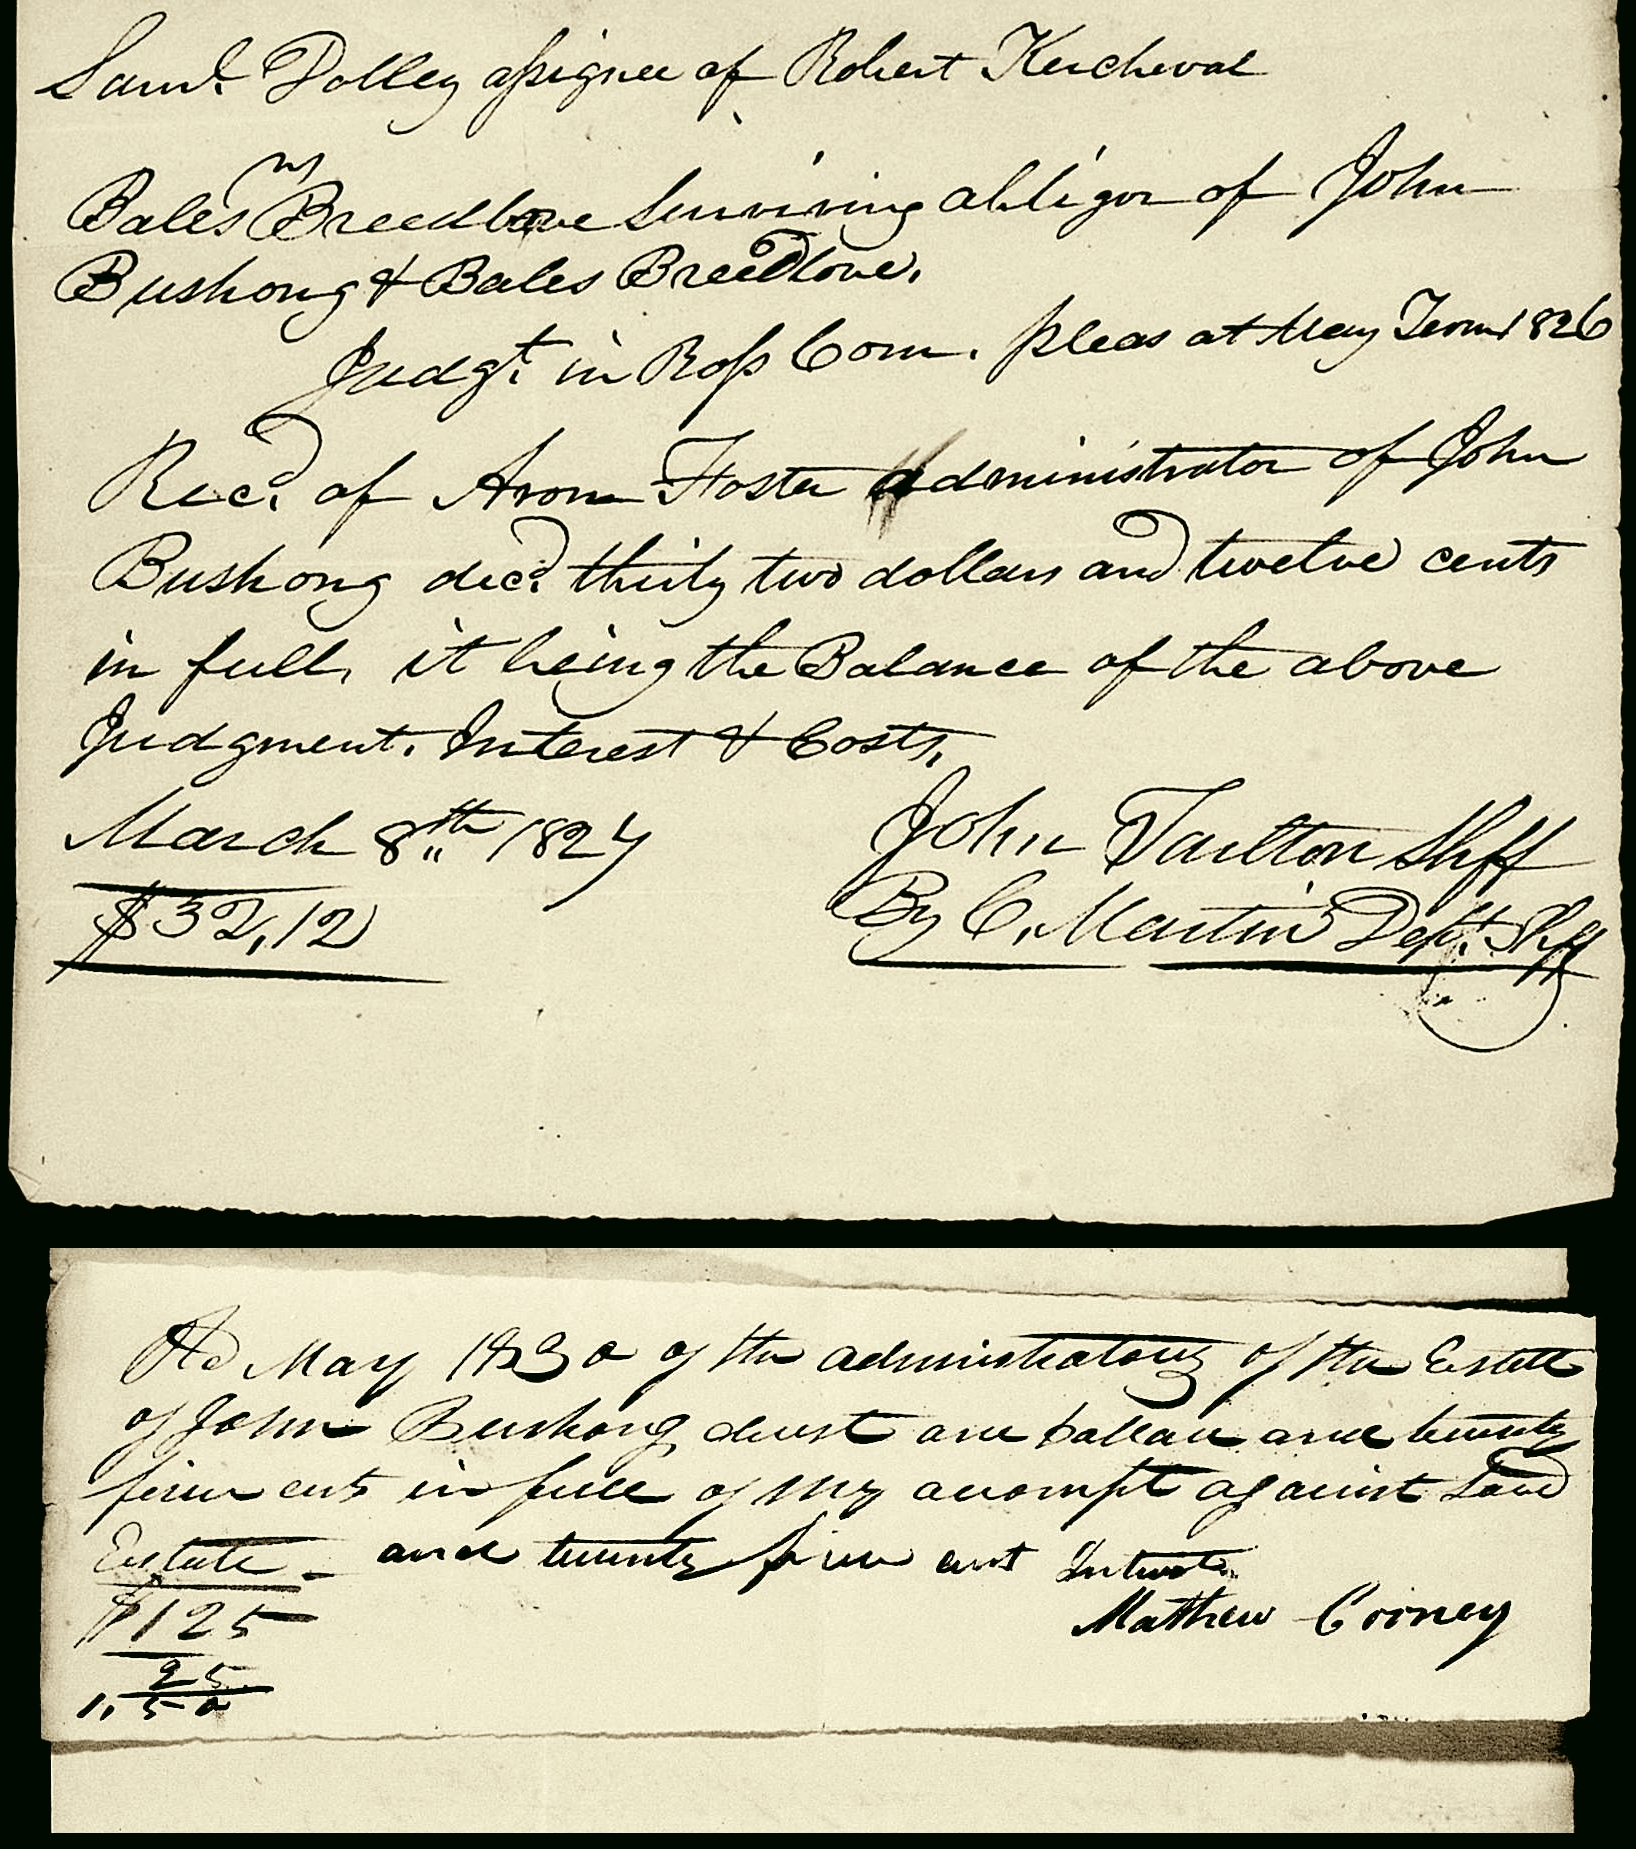 Saml. Polley assignee of Robert Kercheval
vs
Bales Breedlove Surviving obligor of John
Bushong & Bales Breedlove.
Judgt. in Ross Com. pleas at May Term 1826
Recd. of Aron Foster administrator of John
Bushong decd. thirty two dollars and twelve cents
in full, it being the Balance of the above
Judgment. Interest & Costs.
March 8th 1827
$32,12
John Tarlton Shff
By C. Martin Dept. Shff
Rd May 1830 of the administratory of the Estett
of John Bushong deust one Dollar and twenty
five cents in full of my acompt against Said
Estate - and twenty five cent Intrest
Mathew Cooney
$125
25
1.50